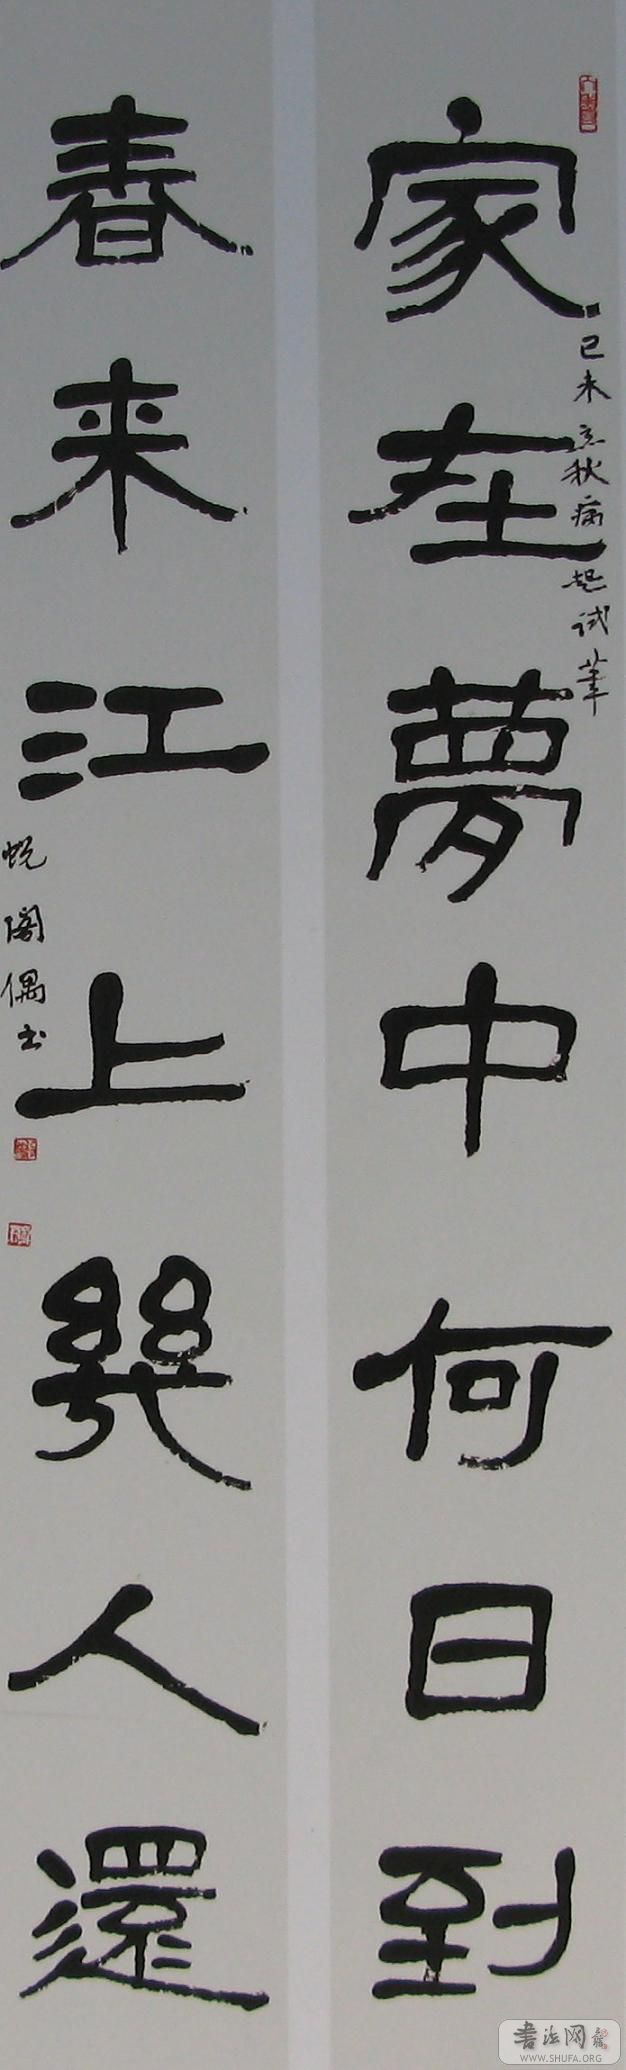 家在夢中何日到
己未立秋病起试筆
春来江上幾人還
蜕阁偶书
书法网
WWW.SHUFA.ORG